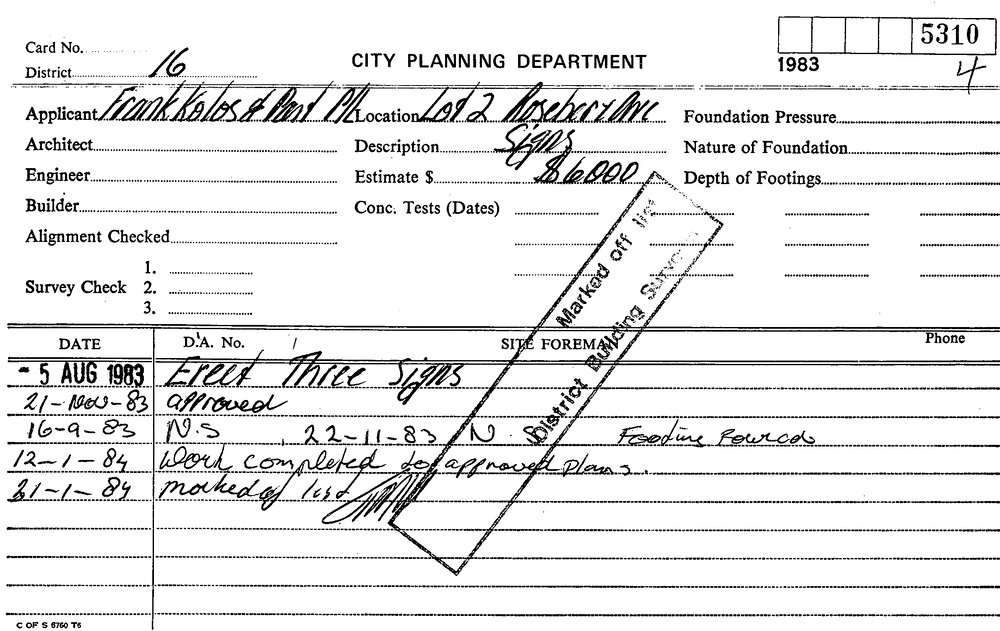 5310
1983
4
Card No.
District 16
CITY PLANNING DEPARTMENT
Applicant Frank Kolos & Pont P/L Location Lot 2 Rosebery Ave Foundation Pressure
Architect Description Signs Nature of Foundation
Engineer Estimate $ $6000 Depth of Footings
Builder Conc. Tests (Dates)
Alignment Checked
1.
Survey Check 2.
3.
DATE D.A. No. / SITE FOREMAN Phone
- 5 AUG 1983 Erect Three Signs
21-Nov-83 approved
16-9-83 N.S 22-11-83 N. Footing Poured
12-1-84 Work completed to approved plans.
21-1-84 marked of list
Marked off list
District Building Surveyor
C OF S 6760 T6